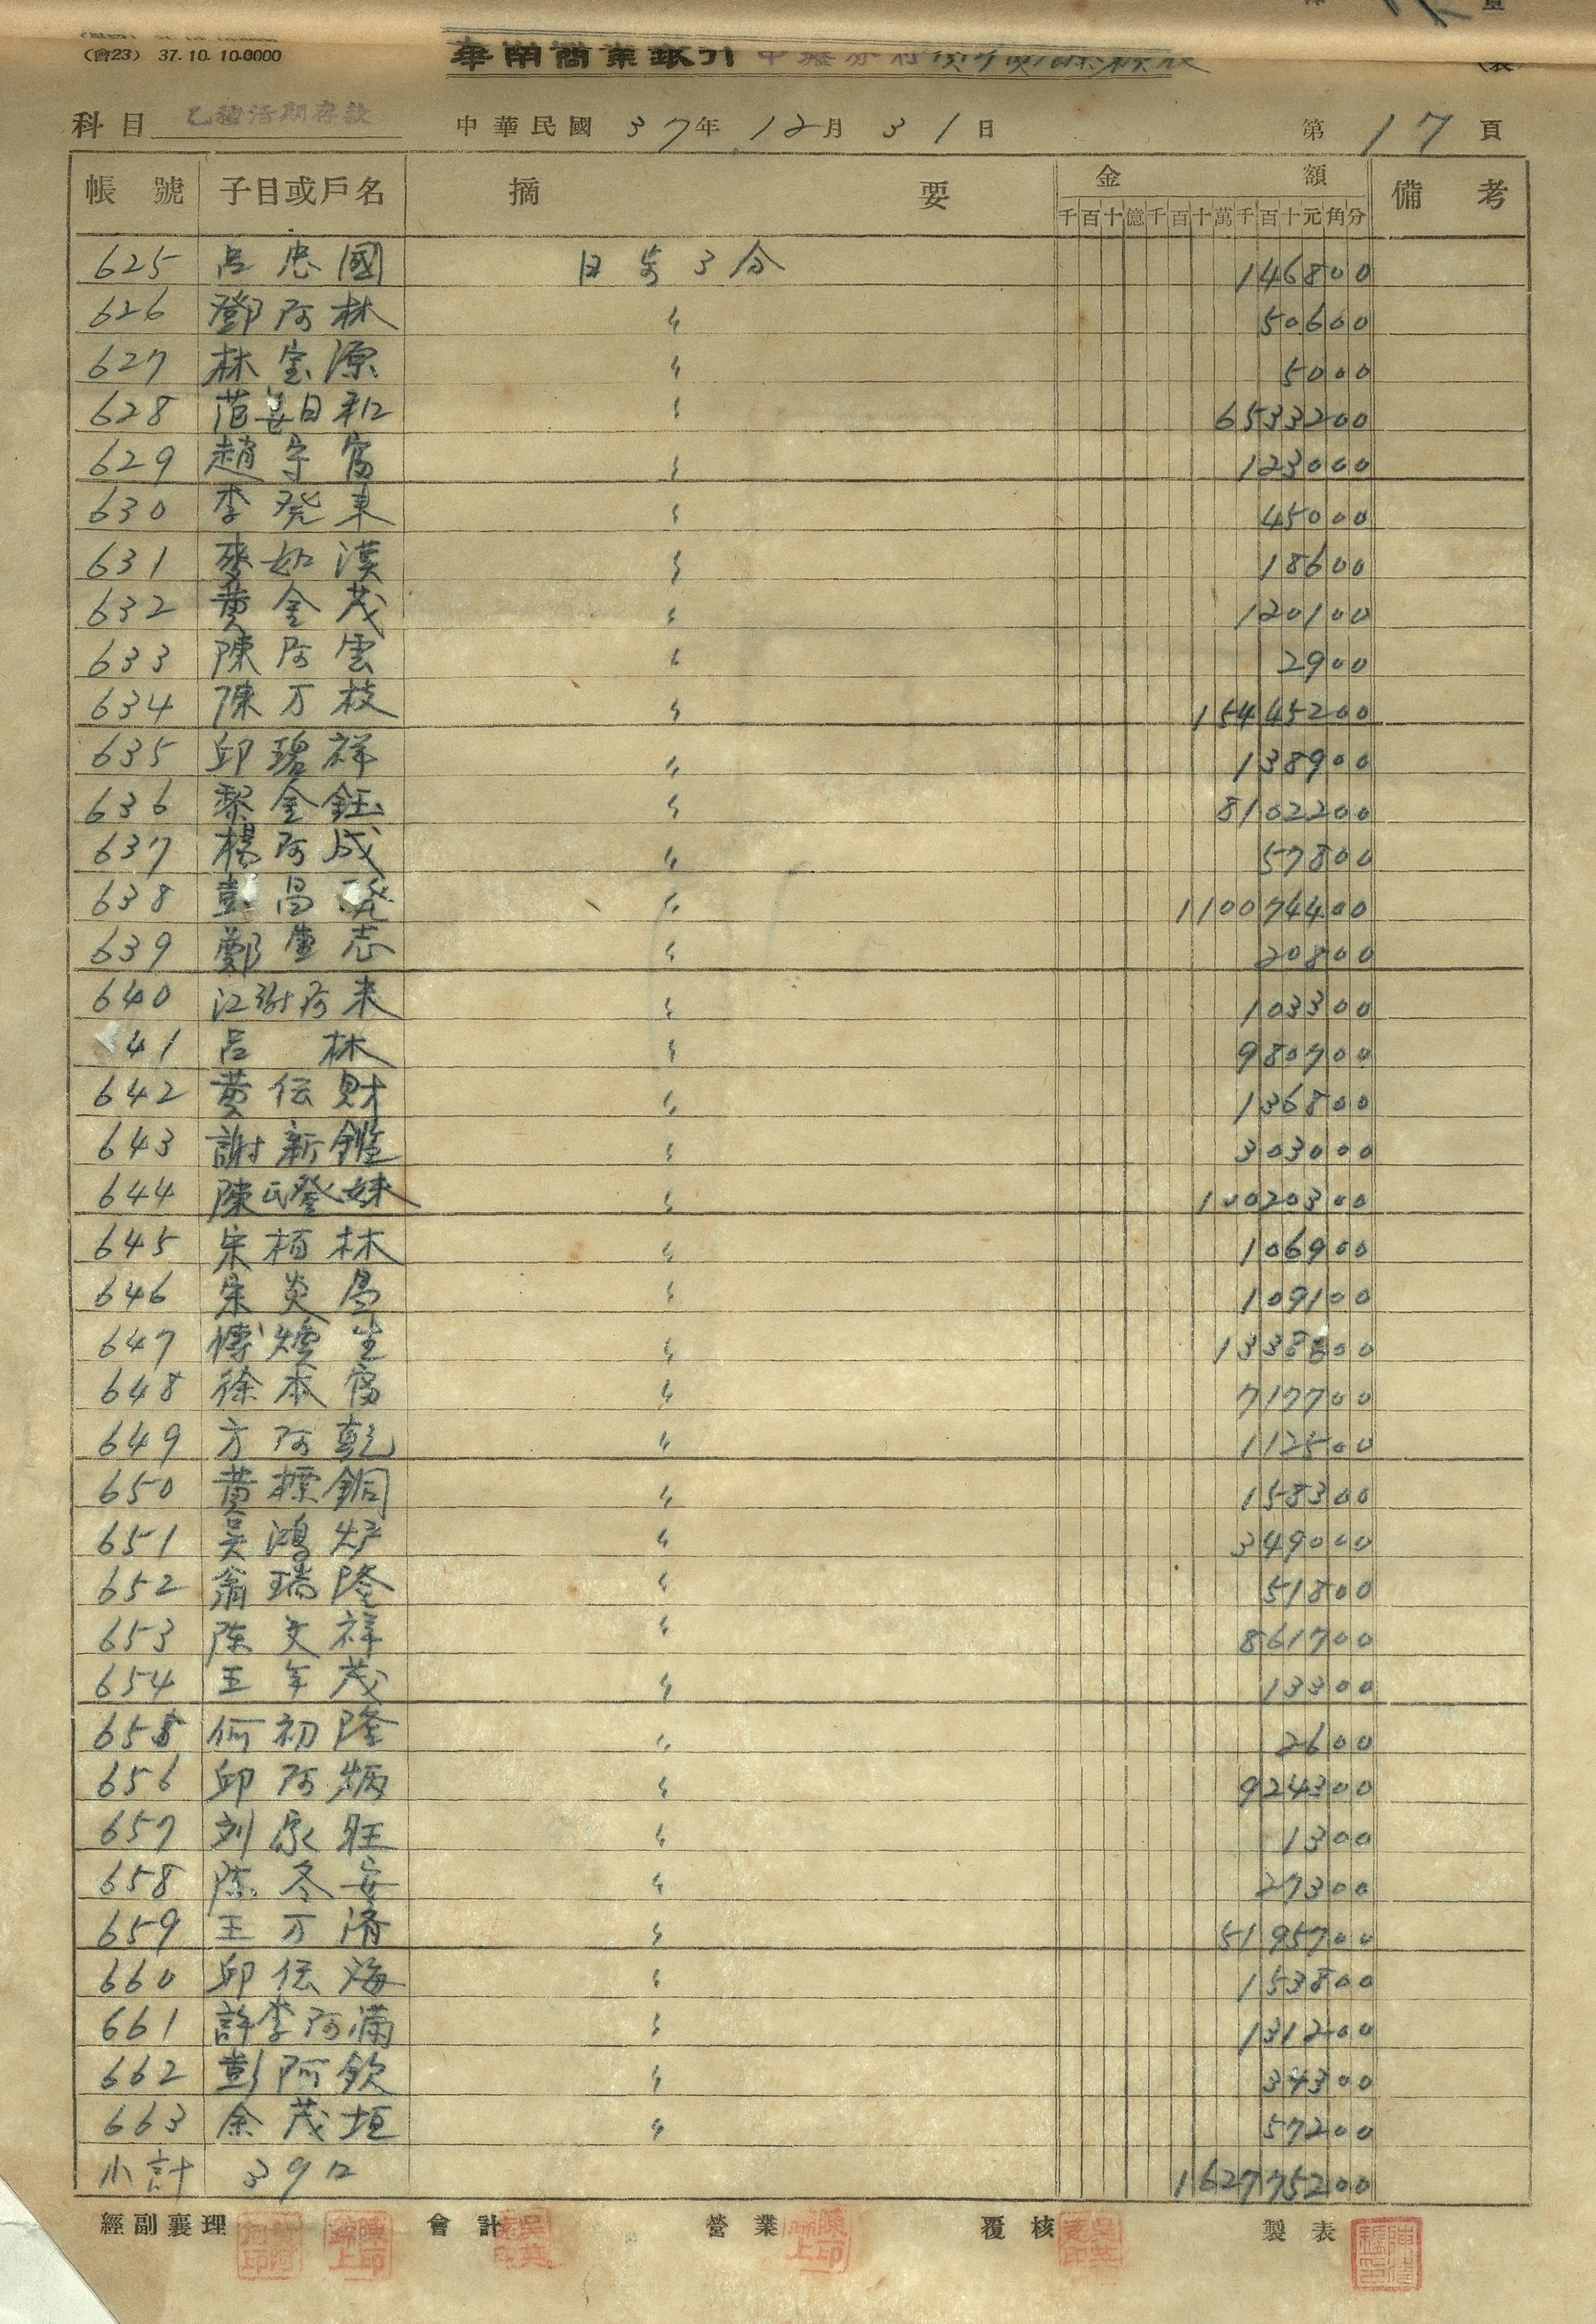 (會23) 37.10.10.0000
華南商業銀行 中壢分行
科目 乙種活期存款 中華民國 37年 12月 31日 第 17 頁
帳號 子目或戶名 摘要 金額 備考
千百十億千百十萬千百十元角分
625 呂忠國 日歩3分 146800
626 鄧阿林 〃 50600
627 林宝源 〃 5000
628 范姜日和 〃 6533200
629 趙守富 〃 123000
630 李発東 〃 45000
631 麥如漢 〃 18600
632 黄金茂 〃 120100
633 陳阿雲 〃 2900
634 陳万枝 〃 15445200
635 邱碧祥 〃 138900
636 黎金鈺 〃 8102200
637 楊阿成 〃 57800
638 彭昌発 〃 110074400
639 鄭 志 〃 20800
640 江謝阿来 〃 103300
41 呂林 〃 980700
642 黄伝財 〃 136800
643 謝新 〃 303000
644 陳氏登妹 〃 10020300
645 宋栢林 〃 106900
646 宋炎昌 〃 109100
647 傅 生 〃 1338800
648 徐本富 〃 717700
649 方阿乾 〃 112500
650 黄標銅 〃 158300
651 吴鴻炉 〃 349000
652 翁瑞隆 〃 51800
653 陳文祥 〃 861700
654 王年茂 〃 13300
655 何初隆 〃 2600
656 邱阿炳 〃 924300
657 刘永旺 〃 1300
658 陳冬安 〃 27300
659 王万済 〃 5195700
660 邱伝海 〃 153800
661 許李阿滿 〃 131200
662 彭阿欽 〃 34300
663 余茂垣 〃 57200
小計 39口 162775200
經副襄理 會計 營業 覆核 製表